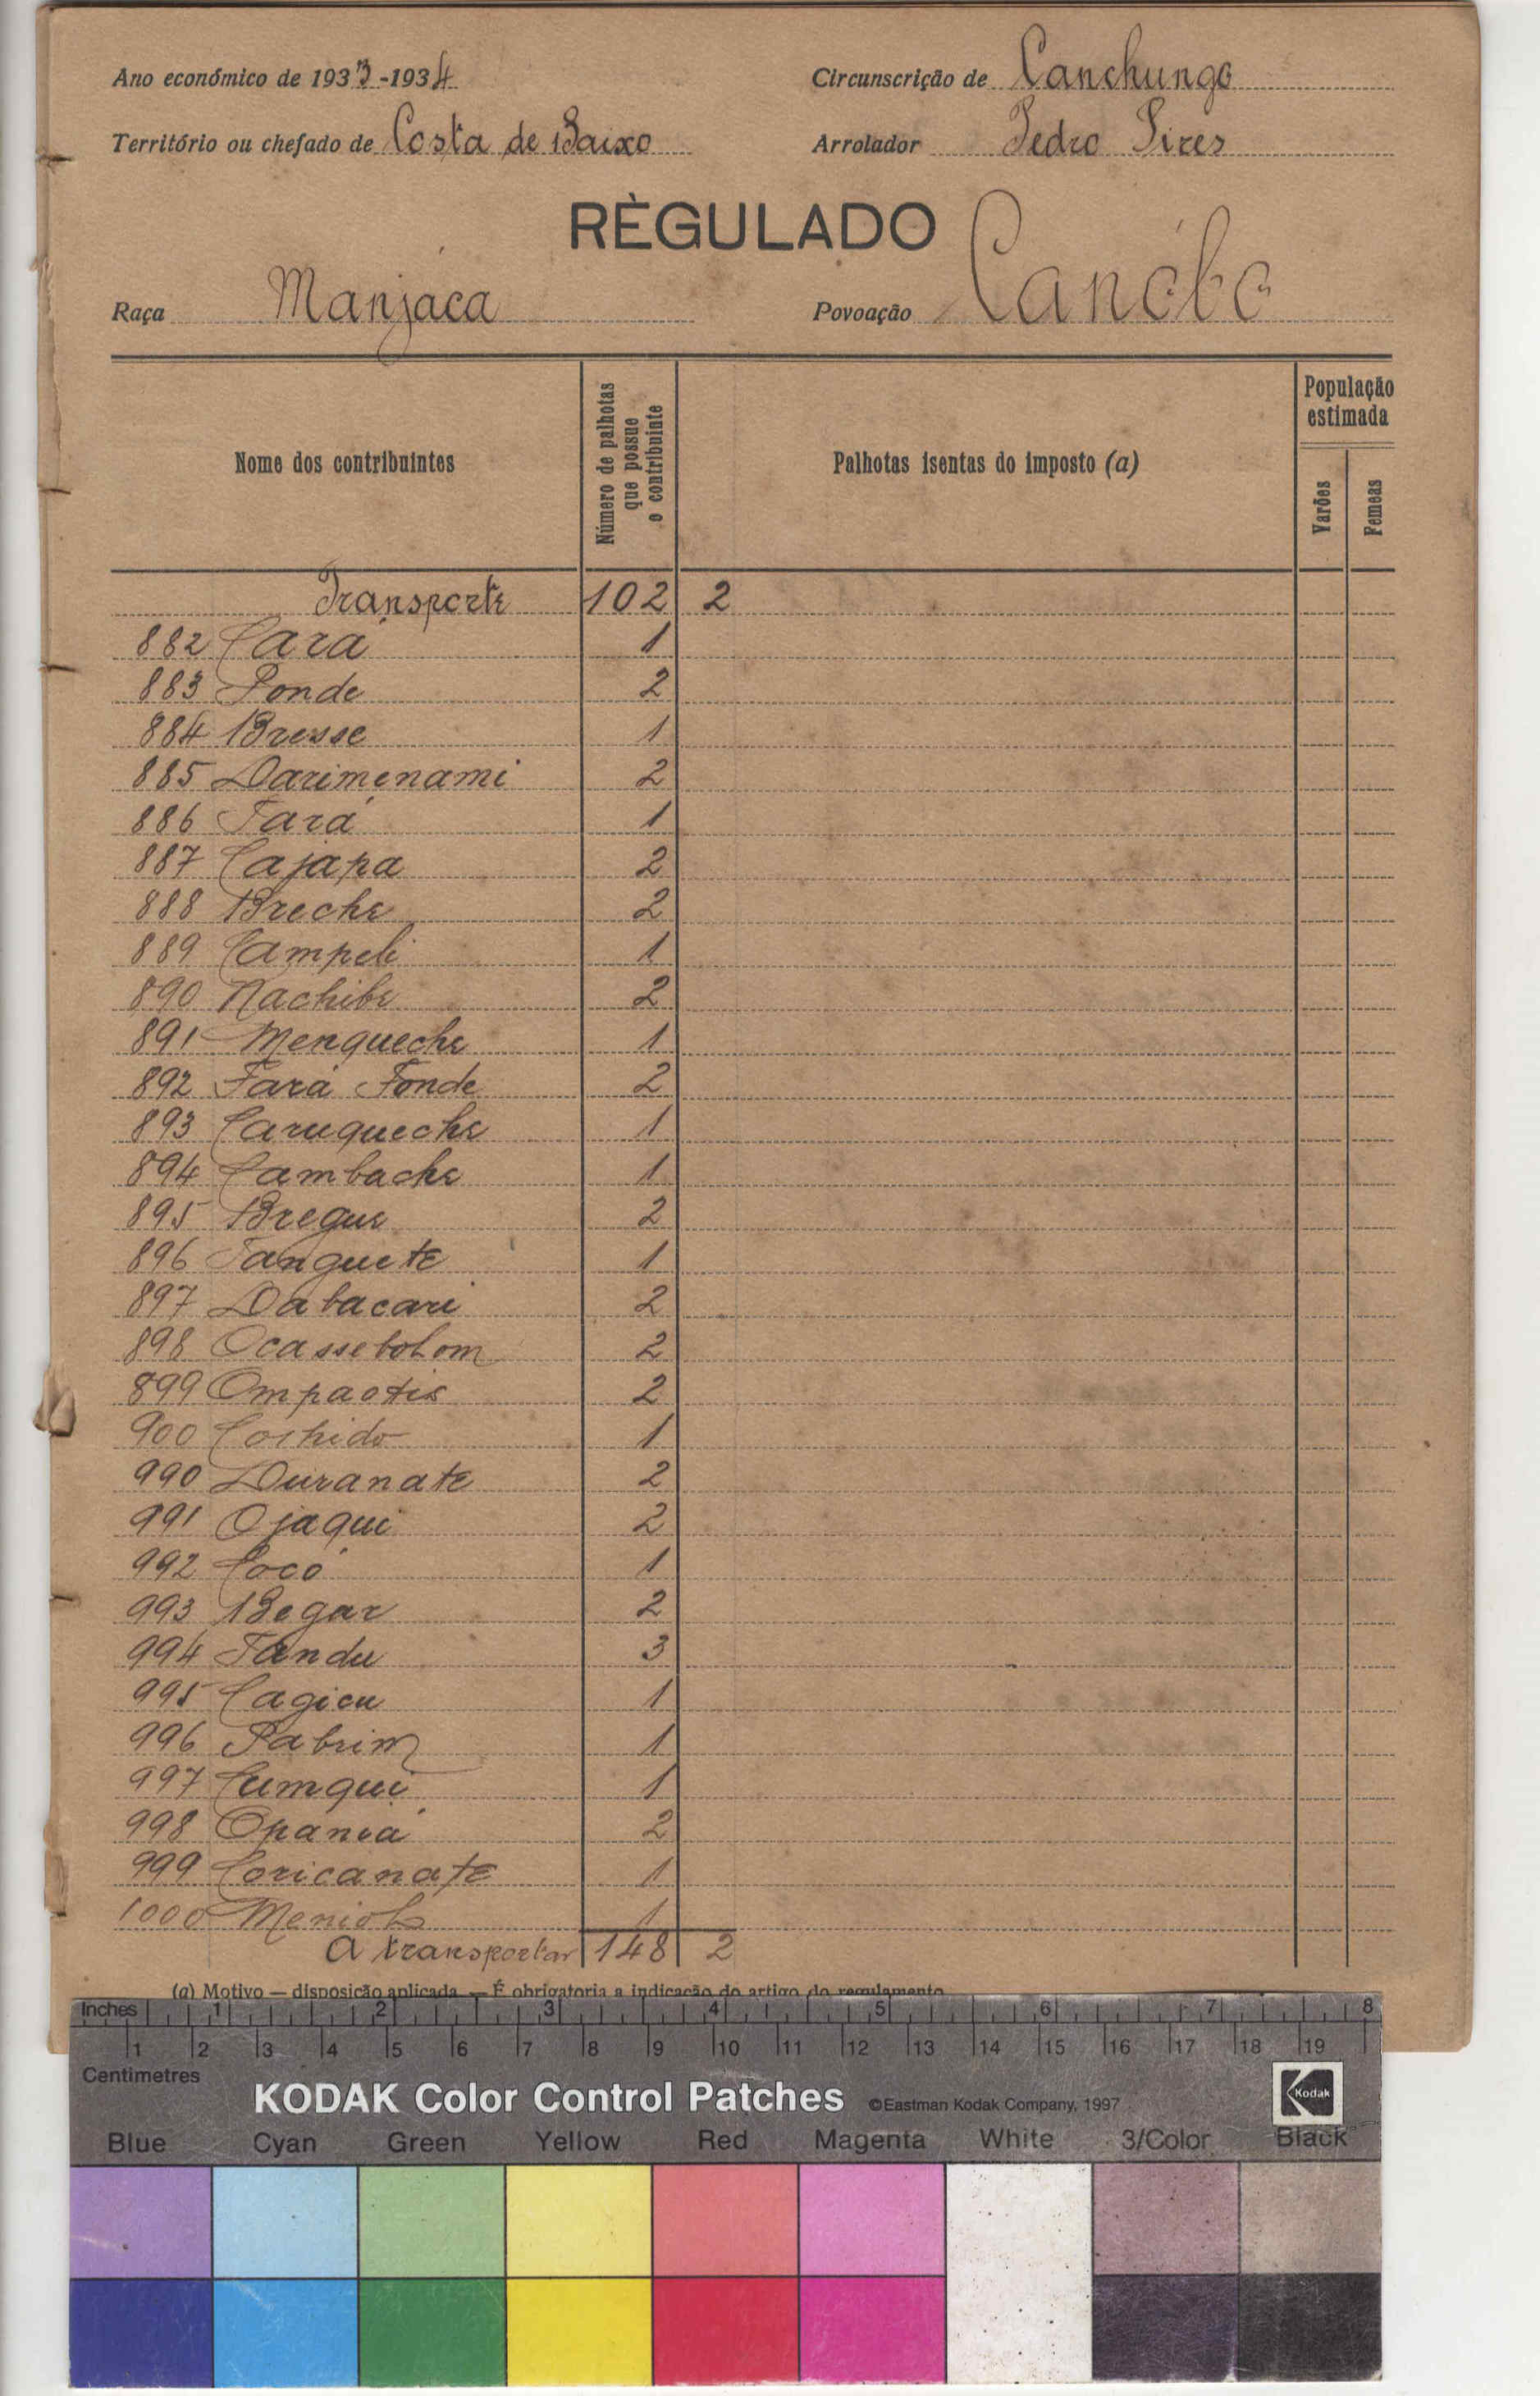 Ano económico de 1933-1934 Circunscrição de Canchungo
Território ou chefado de Costa de Baixo Arrolador Pedro Pires
RÈGULADO
Raça Manjáca Povoação Canóbo
Nome dos contribuintes
Número de palhotas que possue o contribuinte
Palhotas isentas do imposto (a)
População estimada
Varões
Femeas
Transporte 102 2
882 Cará 1
883 Ponde 2
884 Bresse 1
885 Darimenami 2
886 Fará 1
887 Cajapa 2
888 Breche 2
889 Campeli 1
890 Nachibe 2
891 Menqueche 1
892 Fará Fonde 2
893 Caruqueche 1
894 Cambache 1
895 Bregue 2
896 Tanguete 1
897 Dabacari 2
898 Ocassebolom 2
899 Ompaotis 2
900 1
990 Duranate 2
991 Ojaqui 2
992 Cocó 1
993 Begar 2
994 Tandu 3
995 Cagicu 1
996 Pabrim 1
997 Cumqui 1
998 Opaniá 2
999 Coricanate 1
1000 1
A transportar 148 2
(a) Motivo — disposição aplicada — É obrigatoria a indicação do artigo do regulamento
Inches 1 2 3 4 5 6 7 8
1 2 3 4 5 6 7 8 9 10 11 12 13 14 15 16 17 18 19
Centimetres
KODAK Color Control Patches ©Eastman Kodak Company, 1997 Kodak
Blue Cyan Green Yellow Red Magenta White 3/Color Black